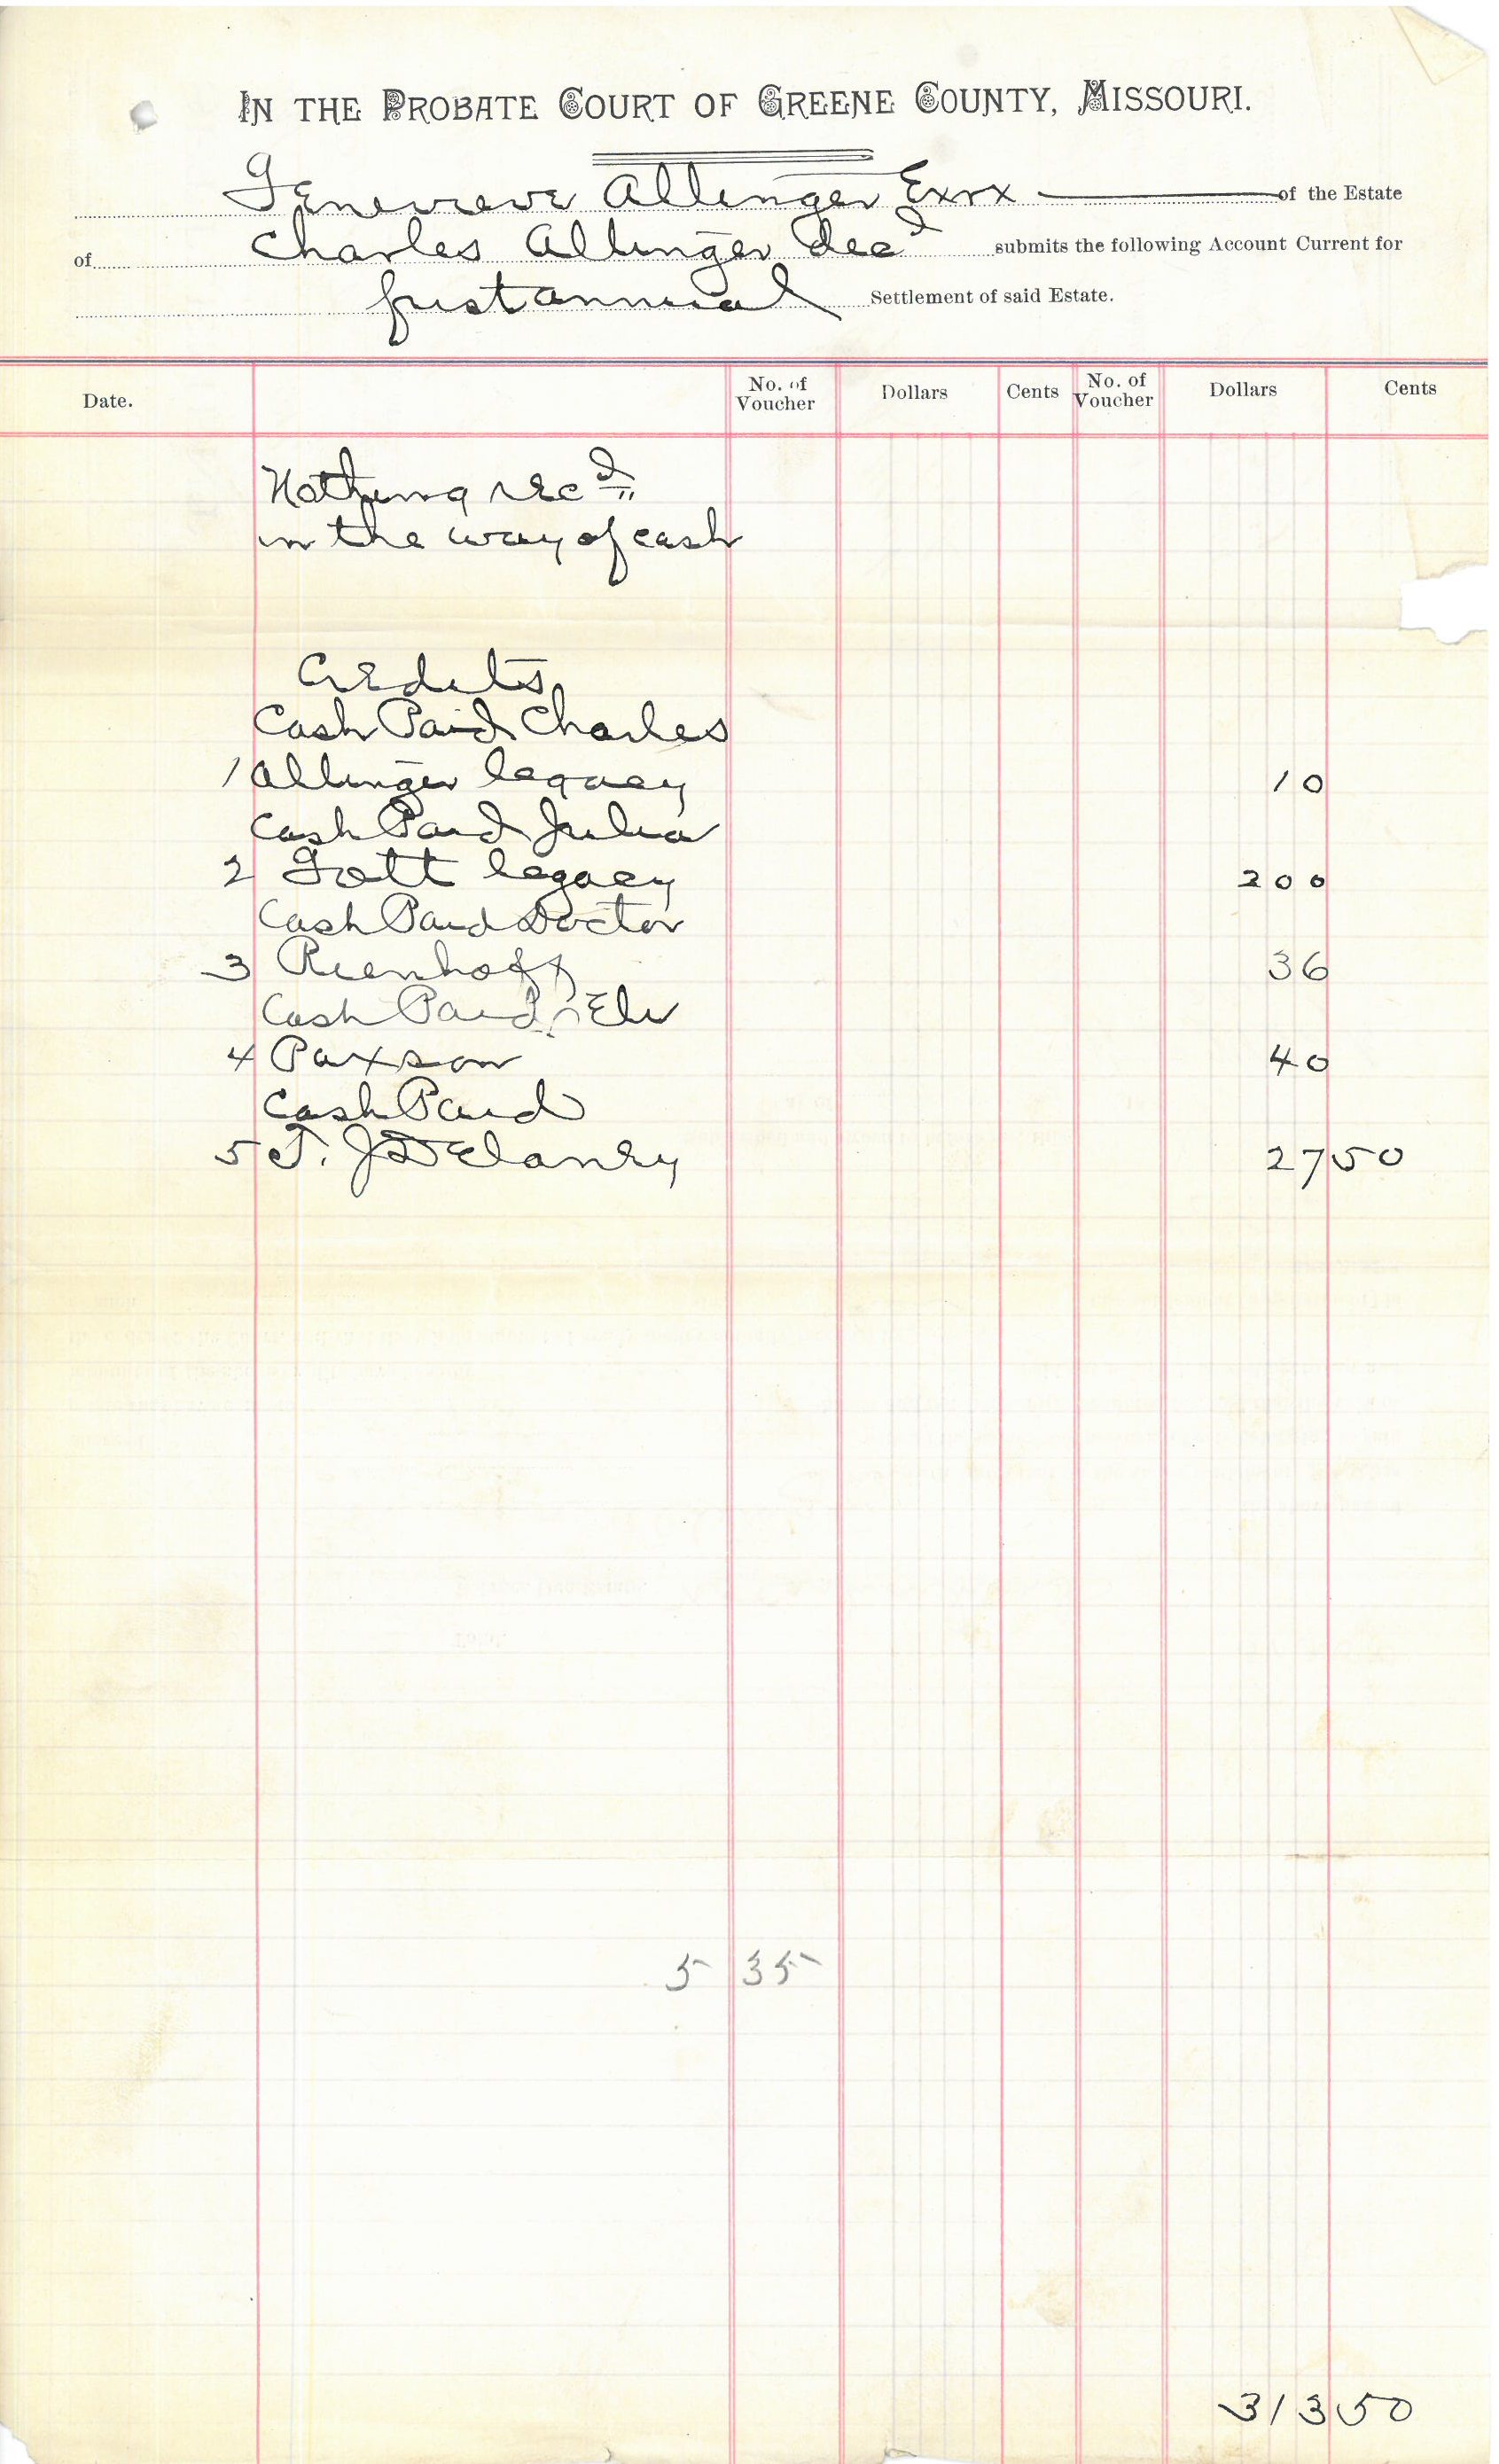 IN THE PROBATE COURT OF GREENE COUNTY, MISSOURI.
Genevieve Allinger Exrx of the Estate
of Charles Allinger Decd submits the following Account Current for
first annual Settlement of said Estate.
Date. No. of Voucher Dollars Cents No. of Voucher Dollars Cents
Nothing recd
in the way of cash
Credits
Cash Paid Charles
1 Allinger legacy 10
Cash Paid Julia
2 Gott legacy 200
Cash Paid Doctor
3 Rienhoff 36
Cash Paid Eli
4 Paxson 40
Cash Paid
5 T. J Delaney 27 50
5 35
313 50